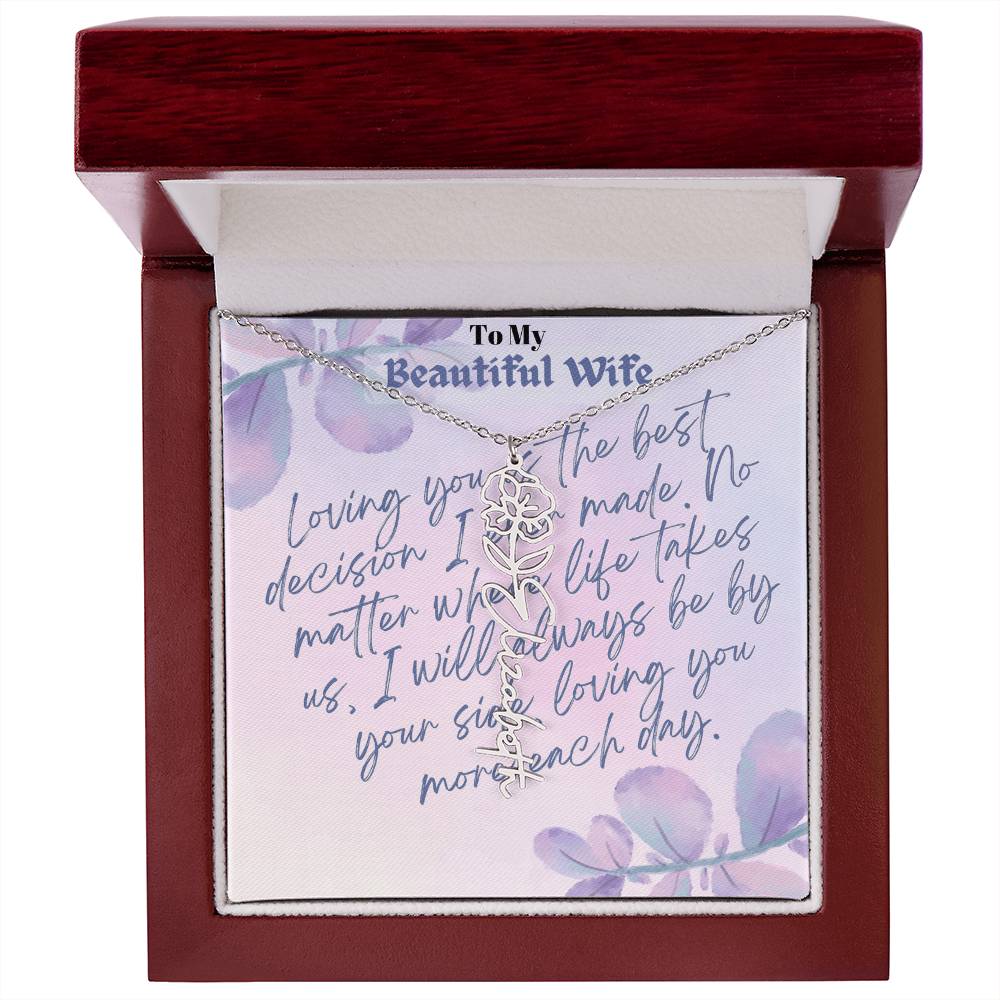 To My
Beautiful Wife
Loving you is the best
decision I made. No
matter where life takes
us, I will always be by
your side loving you
more each day.
Elizabeth